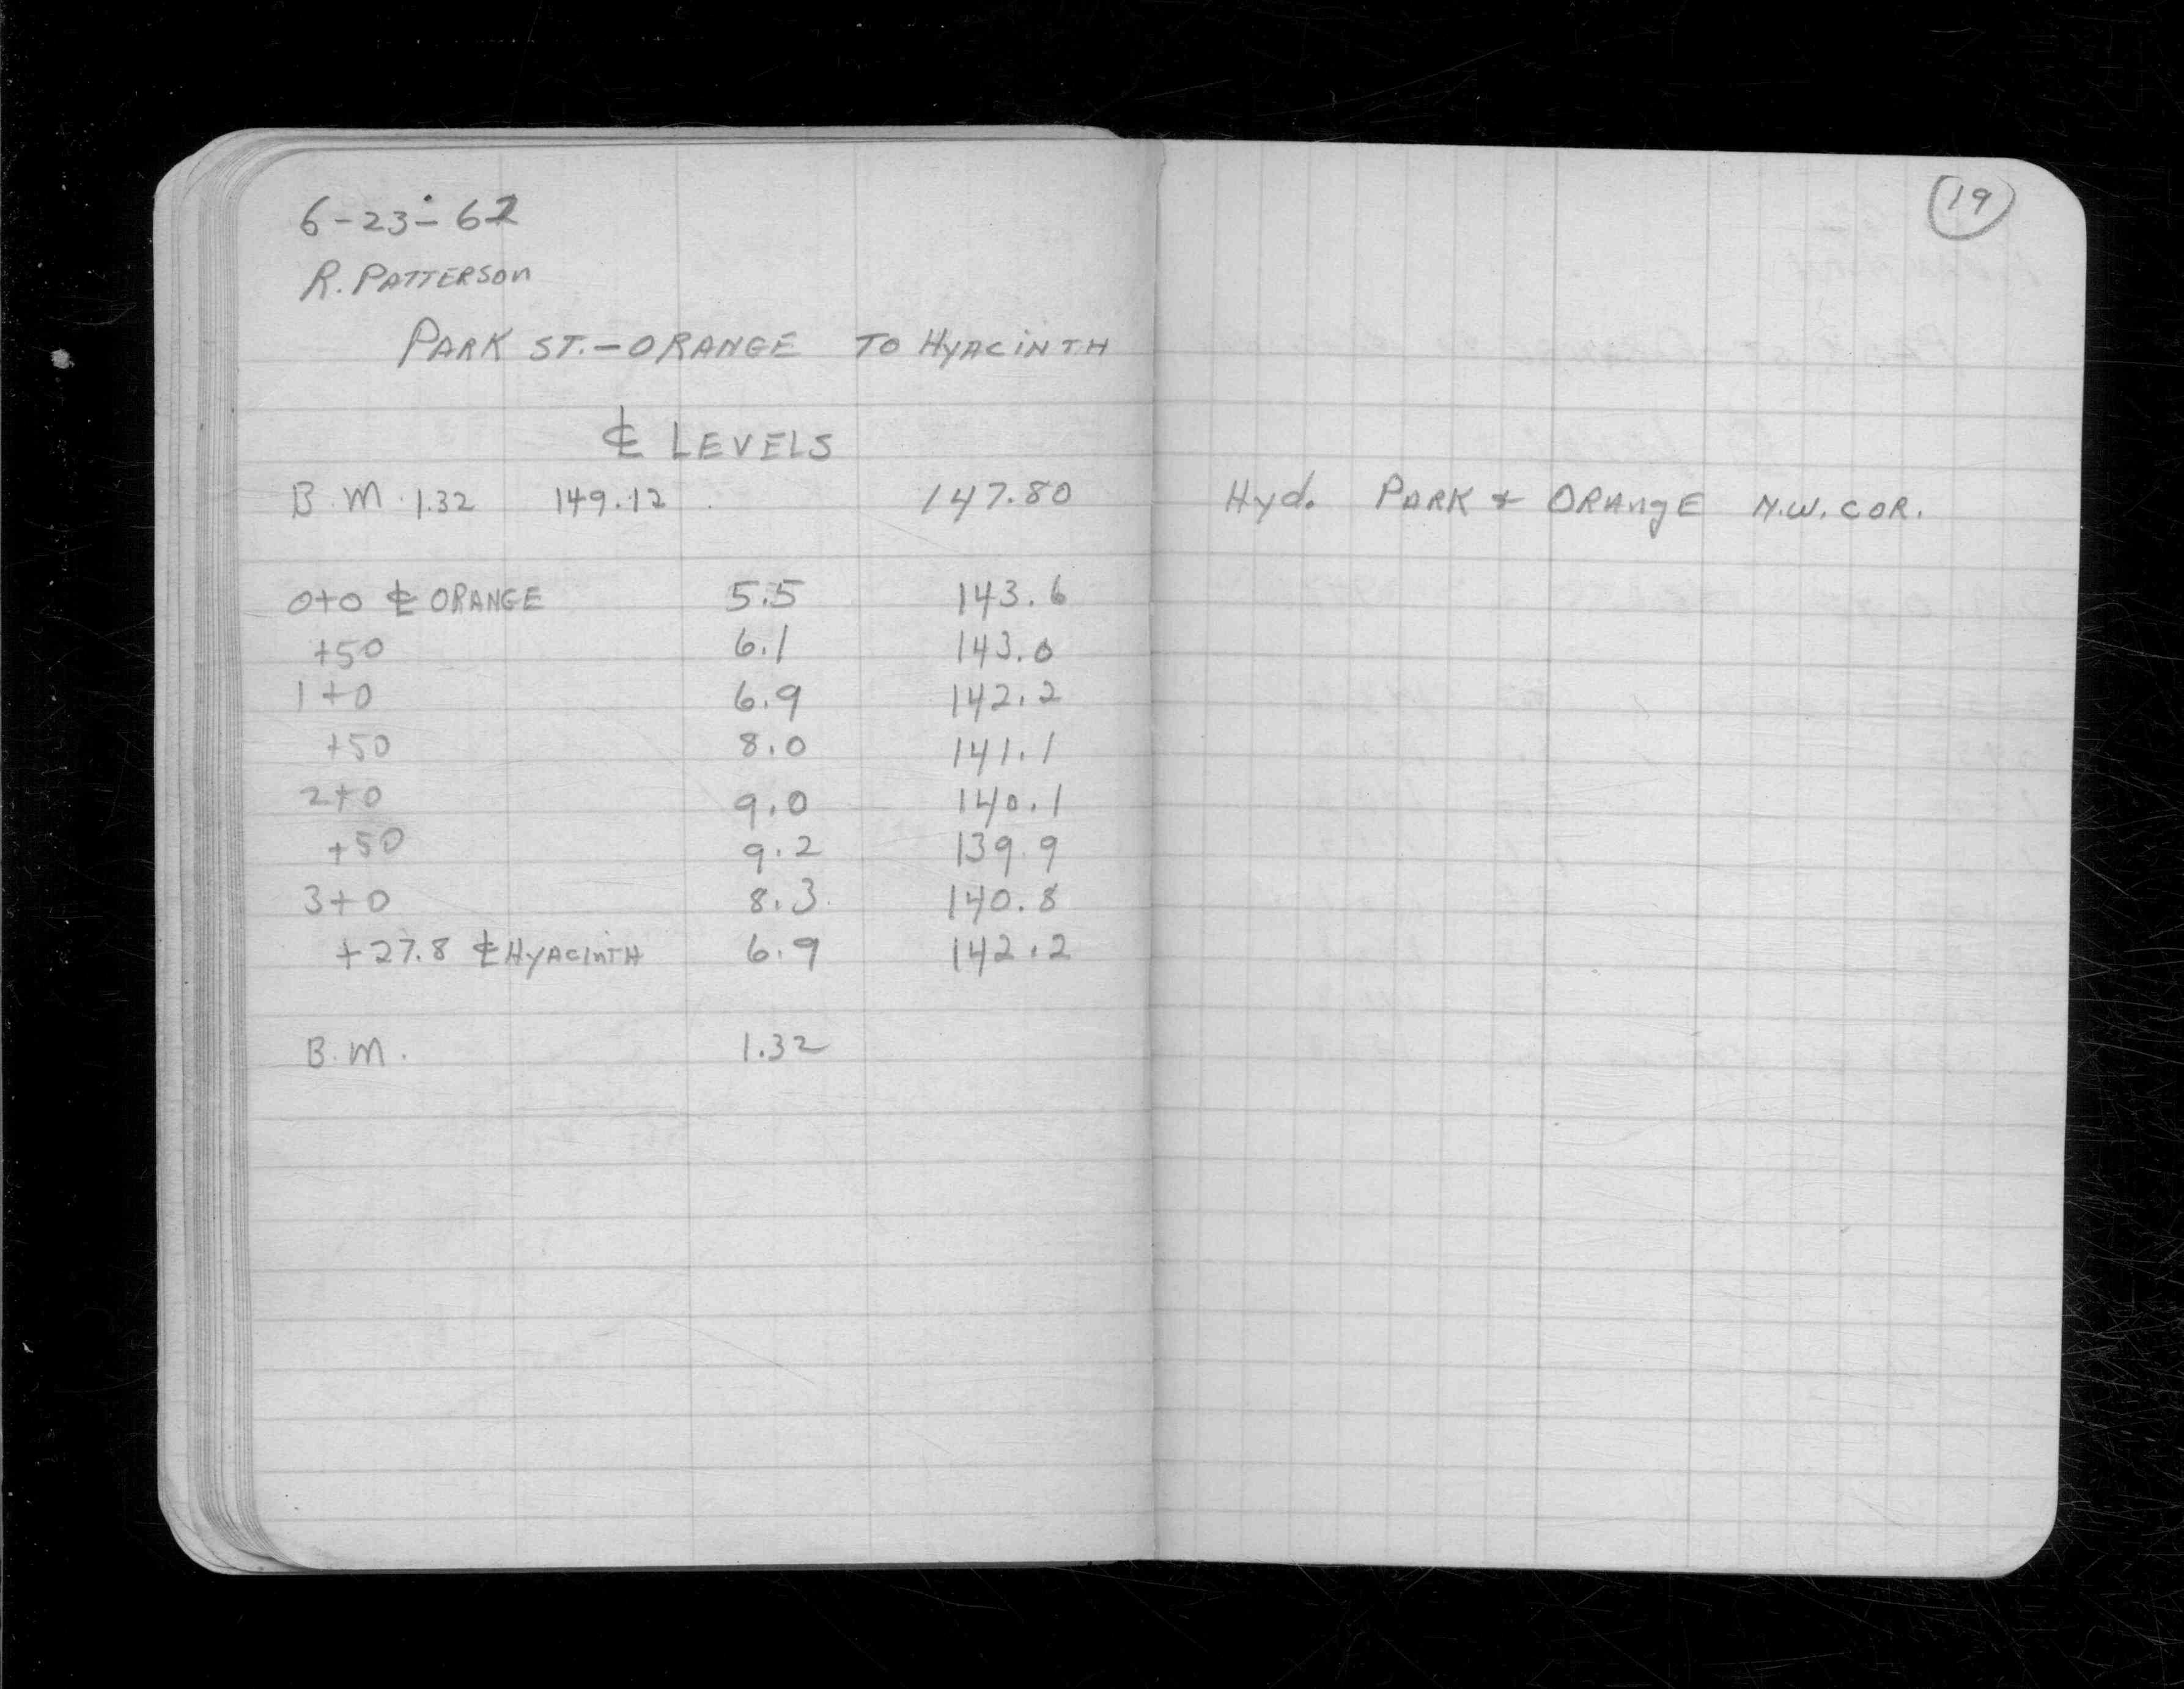 6-23-62
R. PATTERSON
PARK ST.-ORANGE TO HYACINTH
℄ LEVELS
B.M. 1.32 149.12 147.80
0+0 ℄ ORANGE 5.5 143.6
+50 6.1 143.0
1+0 6.9 142.2
+50 8.0 141.1
2+0 9.0 140.1
+50 9.2 139.9
3+0 8.3 140.8
+27.8 ℄ HYACINTH 6.9 142.2
B.M. 1.32
19
Hyd. PARK & ORANGE N.W. COR.